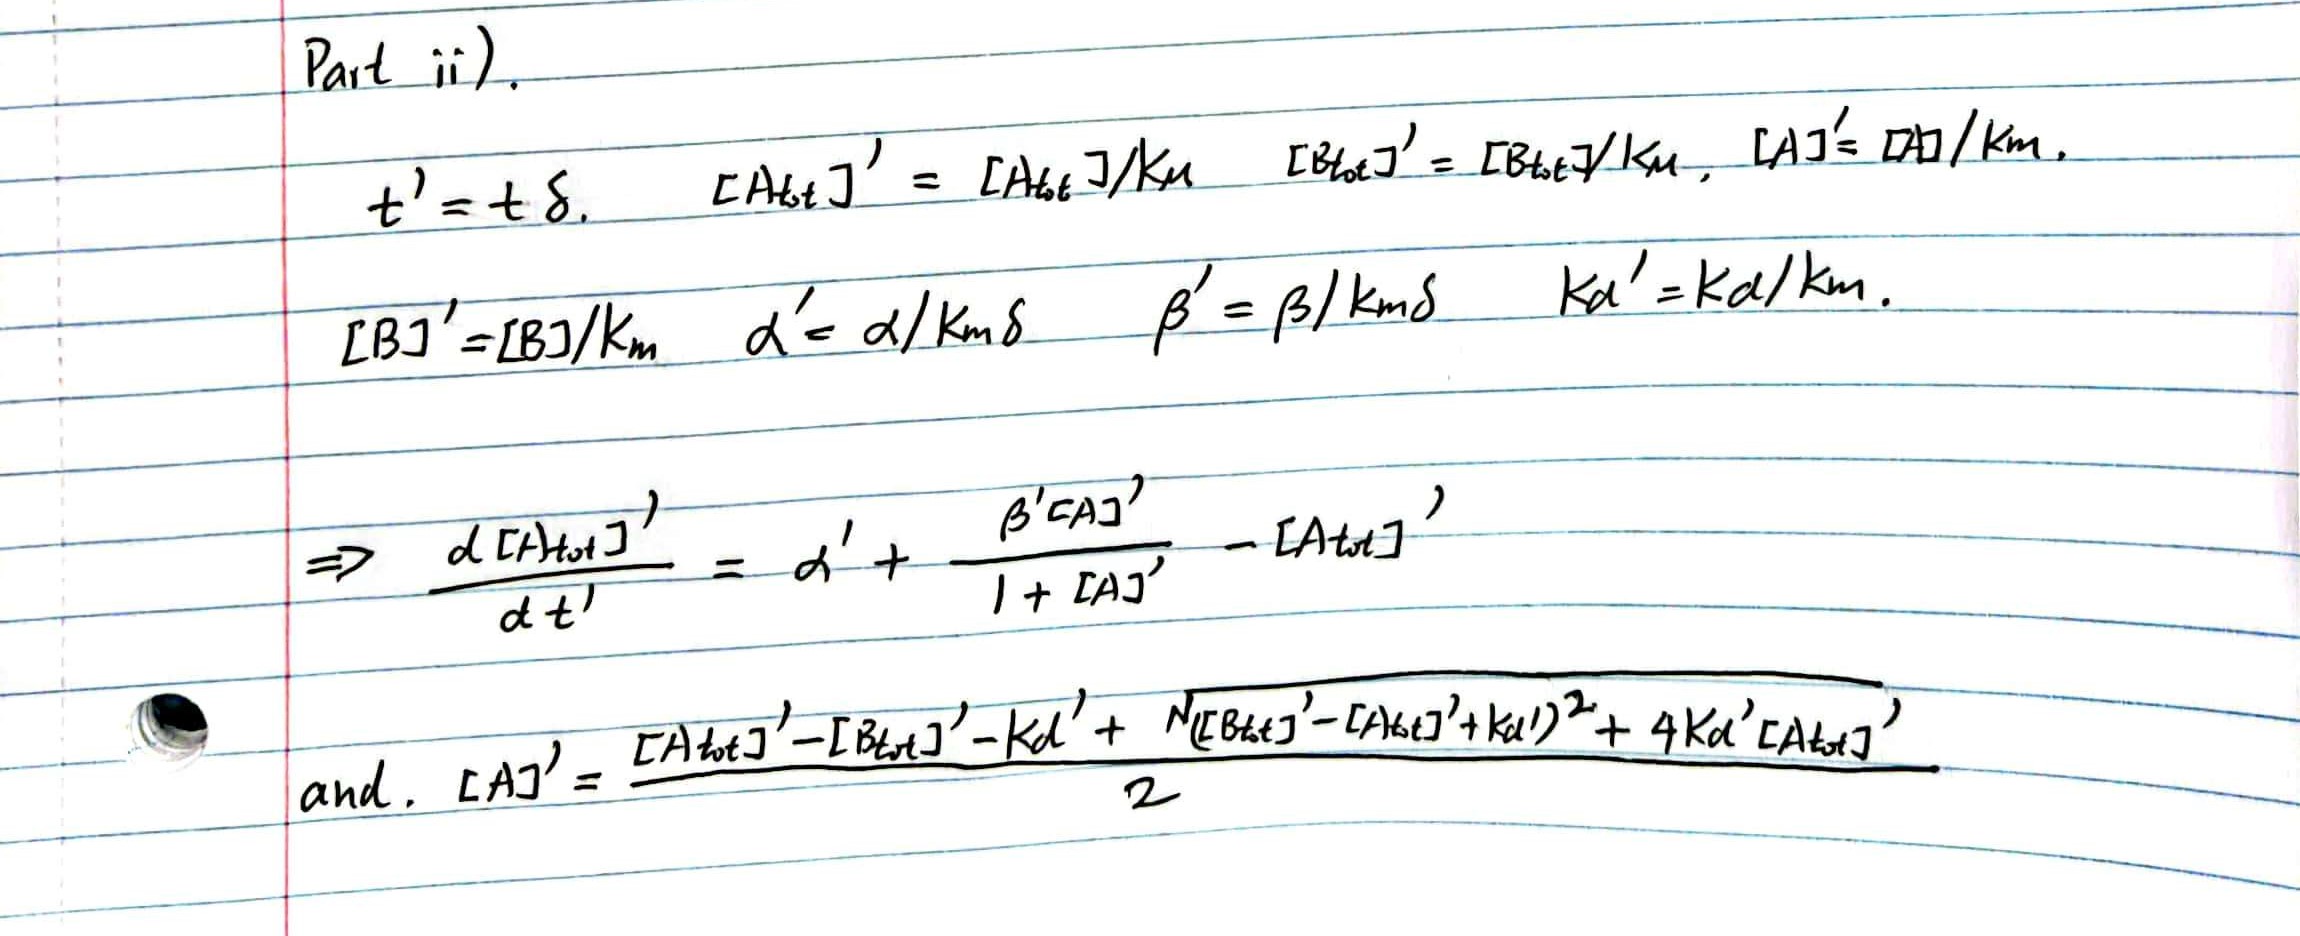 Part ii).
t' = tδ. [Atot]' = [Atot]/KM [Btot]' = [Btot]/KM, [A]' = [A]/Km.
[B]' = [B]/Km α' = α/Kmδ β' = β/Kmδ Kd' = Kd/Km.
⇒ d[Atot]'/dt' = α' + β'[A]'/(1 + [A]') - [Atot]'
and. [A]' = ([Atot]' - [Btot]' - Kd' + √(([Btot]' - [Atot]' + Kd')² + 4Kd'[Atot]'))/2